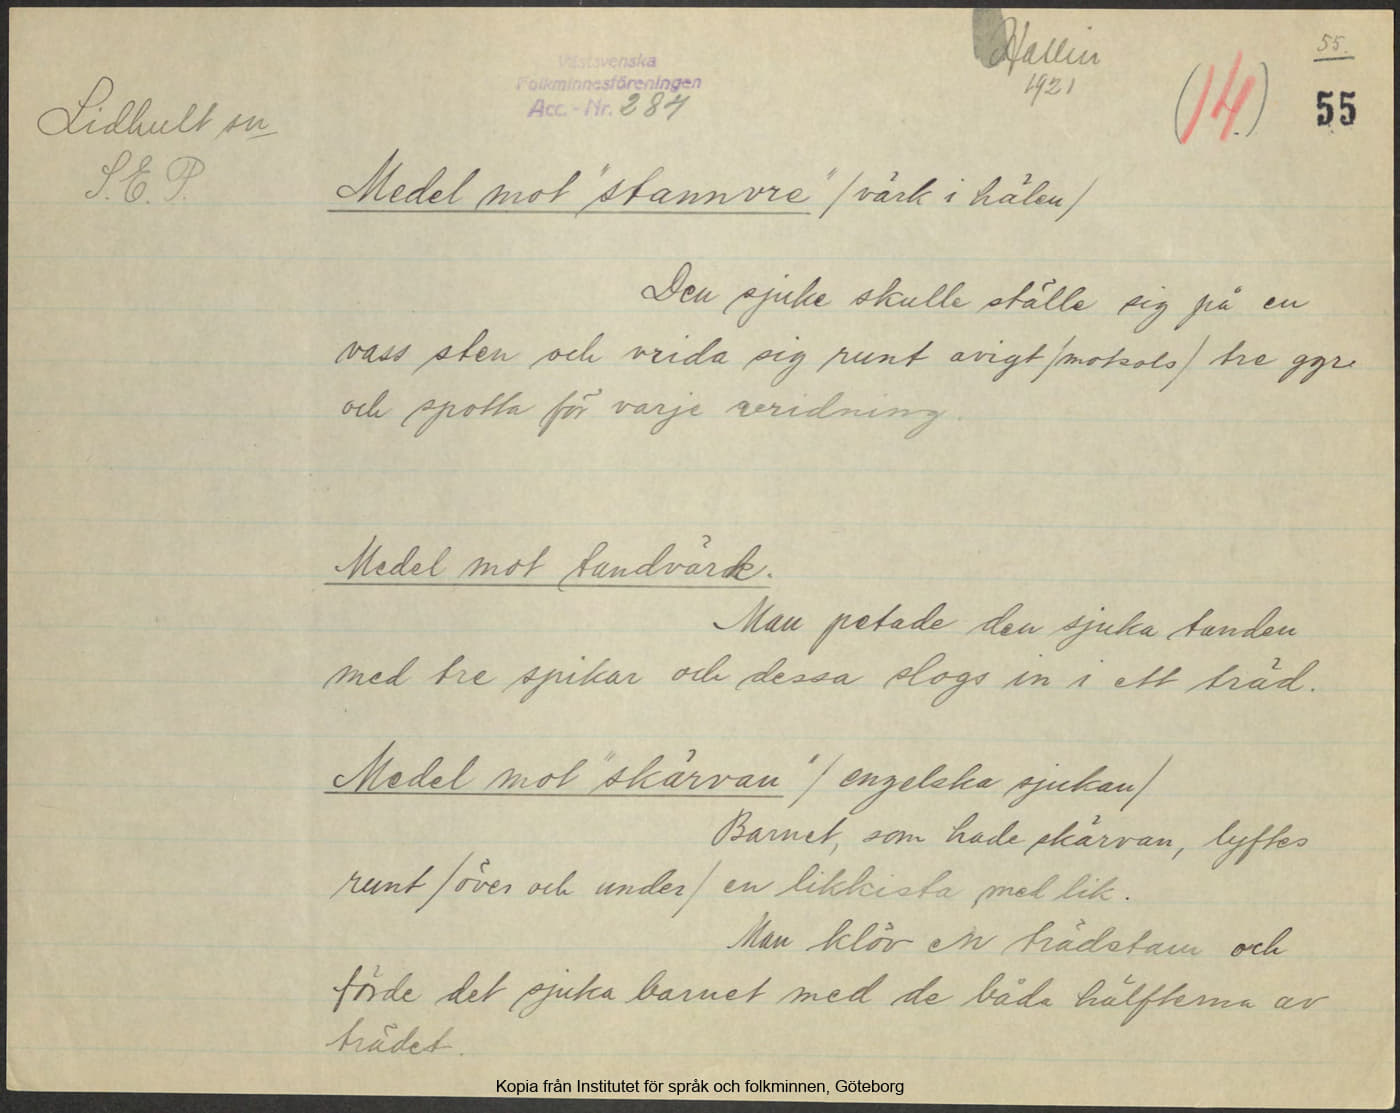 55.
Hallin
1921
(14.)
55
Västsvenska
Folkminnesföreningen
Acc. - Nr. 287
Lidhult sn
S.E.P.
Medel mot "stannvre" /värk i hälen/
Den sjuke skulle ställe sig på en
vass sten och vrida sig runt avigt /motsols/ tre ggr
och spotta för varje vridning.
Medel mot tandvärk.
Man petade den sjuka tanden
med tre spikar och dessa slogs in i ett träd.
Medel mot "skärvan" / engelska sjukan/
Barnet, som hade skärvan, lyftes
runt /över och under/ en likkista med lik.
Man klöv en trädstam och
förde det sjuka barnet med de båda hälfterna av
trädet.
Kopia från Institutet för språk och folkminnen, Göteborg